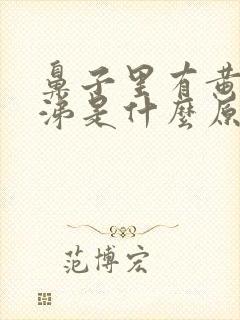 鼻子里有黄
涕是什麼原
范博宏